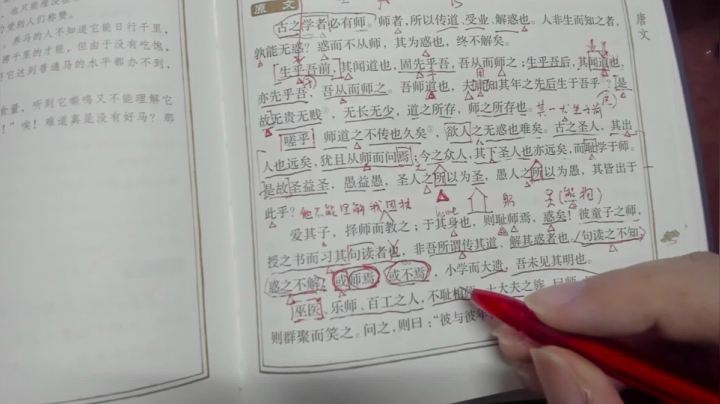 也只能埋没
受到人们称赞。
养马的人不知道它能日行千里,
得千里的才能,但由于没有吃饱,
它达到普通马的水平都办不到,
食量,听到它嘶鸣又不能理解它
!”唉!难道真是没有好马?那
原文
唐文
古之学者必有师。师者,所以传道、受业、解惑也。人非生而知之者,
孰能无惑?惑而不从师,其为惑也,终不解矣。
生乎吾前,其闻道也,固先乎吾,吾从而师之;生乎吾后,其闻道也,
亦先乎吾,吾从而师之。吾师道也,夫庸知其年之先后生于吾乎?是
故无贵无贱,无长无少,道之所存,师之所存也。
嗟乎!师道之不传也久矣,欲人之无惑也难矣。古之圣人,其出
人也远矣,犹且从师而问焉;今之众人,其下圣人也亦远矣,而耻学于师。
是故圣益圣,愚益愚,圣人之所以为圣,愚人之所以为愚,其皆出于
此乎?
爱其子,择师而教之;于其身也,则耻师焉,惑矣!彼童子之师,
授之书而习其句读者也,非吾所谓传其道、解其惑者也。句读之不知,
惑之不解,或师焉,或不焉,小学而大遗,吾未见其明也。
巫医、乐师、百工之人,不耻相师。士大夫之族,曰师
则群聚而笑之。问之,则曰:“彼与彼年